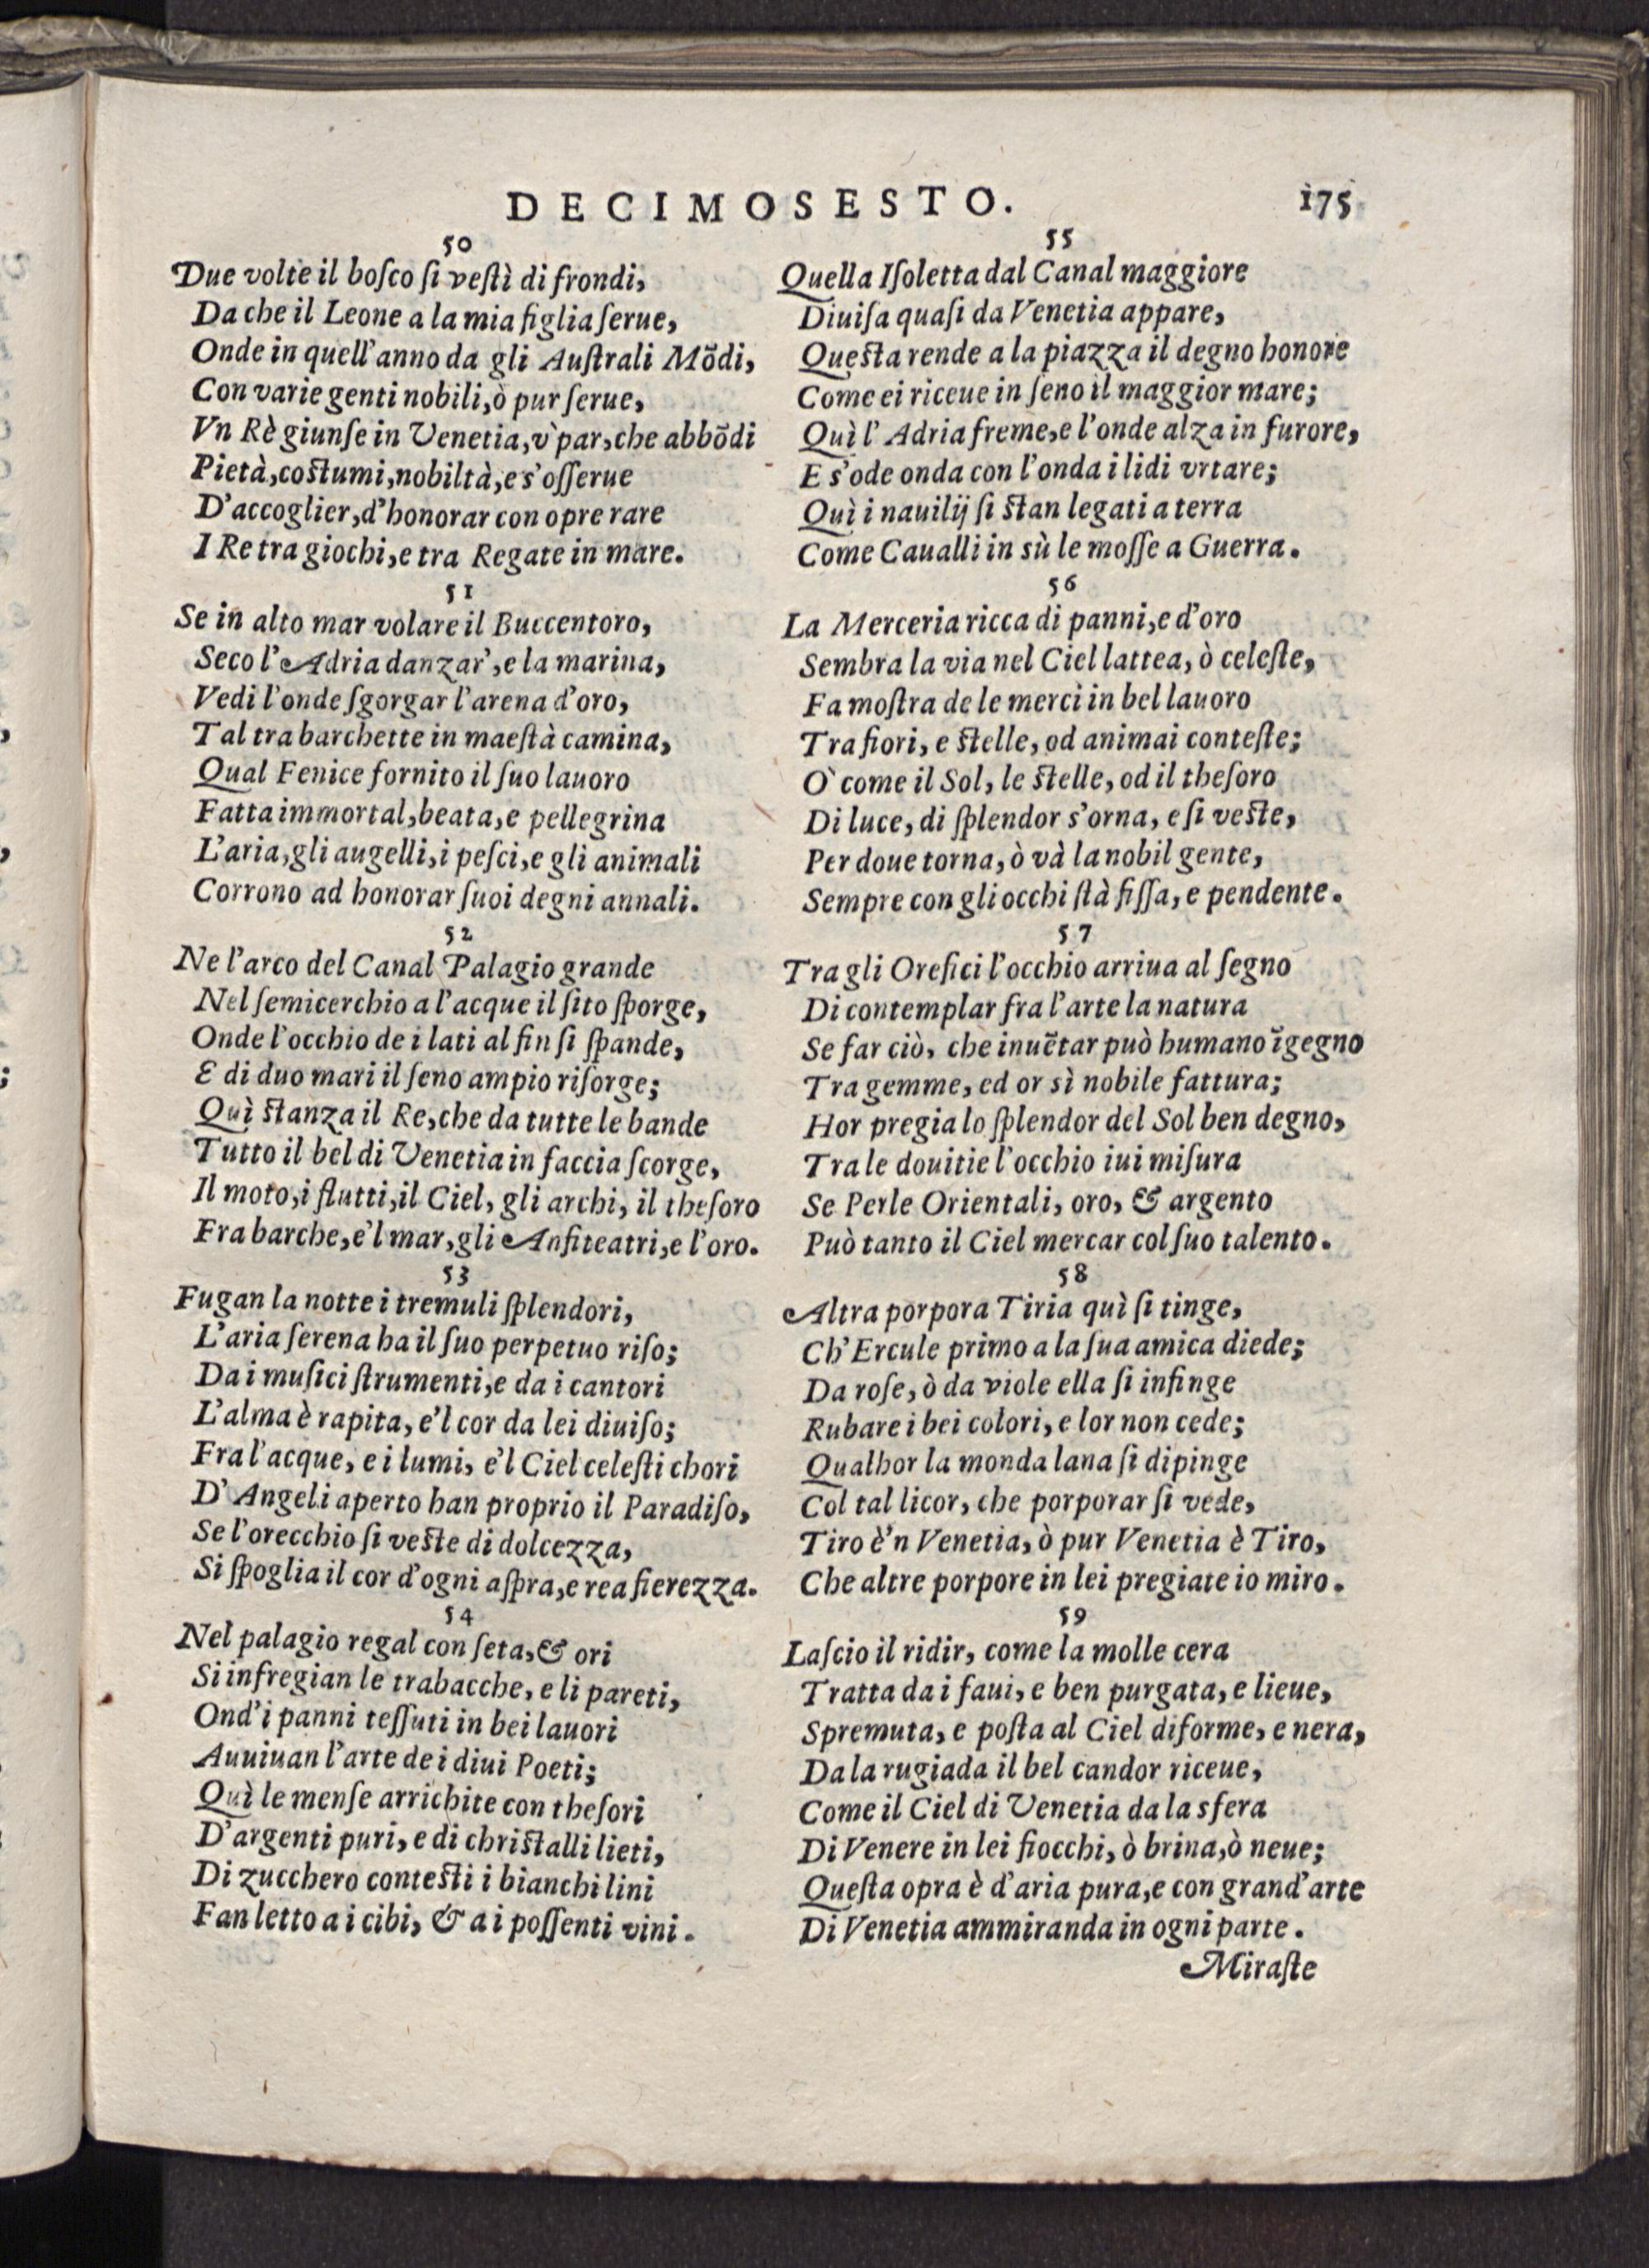 DECIMOSESTO. 175
50
Due volte il boſco ſi veſtì di frondi,
Da che il Leone a la mia figlia ſerue,
Onde in quell'anno da gli Auſtrali Mōdi,
Con varie genti nobili, ò pur ſerue,
Vn Rè giunſe in Venetia, v' par, che abbōdi
Pietà, coſtumi, nobiltà, e s'oſſerue
D'accoglier, d'honorar con opre rare
I Re tra giochi, e tra Regate in mare.
51
Se in alto mar volare il Buccentoro,
Seco l'Adria danzar', e la marina,
Vedi l'onde ſgorgar l'arena d'oro,
Tal tra barchette in maeſtà camina,
Qual Fenice fornito il ſuo lauoro
Fatta immortal, beata, e pellegrina
L'aria, gli augelli, i peſci, e gli animali
Corrono ad honorar ſuoi degni annali.
52
Ne l'arco del Canal Palagio grande
Nel ſemicerchio a l'acque il ſito ſporge,
Onde l'occhio de i lati al fin ſi ſpande,
E di duo mari il ſeno ampio riſorge;
Quì ſtanza il Re, che da tutte le bande
Tutto il bel di Venetia in faccia ſcorge,
Il moto, i flutti, il Ciel, gli archi, il theſoro
Fra barche, e'l mar, gli Anfiteatri, e l'oro.
53
Fugan la notte i tremuli ſplendori,
L'aria ſerena ha il ſuo perpetuo riſo;
Da i muſici ſtrumenti, e da i cantori
L'alma è rapita, e'l cor da lei diuiſo;
Fra l'acque, e i lumi, e'l Ciel celeſti chori
D'Angeli aperto han proprio il Paradiſo,
Se l'orecchio ſi veſte di dolcezza,
Si ſpoglia il cor d'ogni aſpra, e rea fierezza.
54
Nel palagio regal con ſeta, & ori
Si infregian le trabacche, e li pareti,
Ond'i panni teſſuti in bei lauori
Auuiuan l'arte de i diui Poeti;
Quì le menſe arrichite con theſori
D'argenti puri, e di chriſtalli lieti,
Di zucchero conteſti i bianchi lini
Fan letto a i cibi, & a i poſſenti vini.
55
Quella Iſoletta dal Canal maggiore
Diuiſa quaſi da Venetia appare,
Queſta rende a la piazza il degno honore
Come ei riceue in ſeno il maggior mare;
Quì l'Adria freme, e l'onde alza in furore,
E s'ode onda con l'onda i lidi vrtare;
Quì i nauilij ſi ſtan legati a terra
Come Caualli in sù le moſſe a Guerra.
56
La Merceria ricca di panni, e d'oro
Sembra la via nel Ciel lattea, ò celeſte,
Fa moſtra de le merci in bel lauoro
Tra fiori, e ſtelle, od animai conteſte;
O' come il Sol, le ſtelle, od il theſoro
Di luce, di ſplendor s'orna, e ſi veſte,
Per doue torna, ò và la nobil gente,
Sempre con gli occhi ſtà fiſſa, e pendente.
57
Tra gli Orefici l'occhio arriua al ſegno
Di contemplar fra l'arte la natura
Se far ciò, che inuētar può humano īgegno
Tra gemme, ed or sì nobile fattura;
Hor pregia lo ſplendor del Sol ben degno,
Tra le douitie l'occhio iui miſura
Se Perle Orientali, oro, & argento
Può tanto il Ciel mercar col ſuo talento.
58
Altra porpora Tiria quì ſi tinge,
Ch'Ercule primo a la ſua amica diede;
Da roſe, ò da viole ella ſi infinge
Rubare i bei colori, e lor non cede;
Qualhor la monda lana ſi dipinge
Col tal licor, che porporar ſi vede,
Tiro è'n Venetia, ò pur Venetia è Tiro,
Che altre porpore in lei pregiate io miro.
59
Laſcio il ridir, come la molle cera
Tratta da i faui, e ben purgata, e lieue,
Spremuta, e poſta al Ciel diforme, e nera,
Da la rugiada il bel candor riceue,
Come il Ciel di Venetia da la sfera
Di Venere in lei fiocchi, ò brina, ò neue;
Queſta opra è d'aria pura, e con grand'arte
Di Venetia ammiranda in ogni parte.
Miraſte